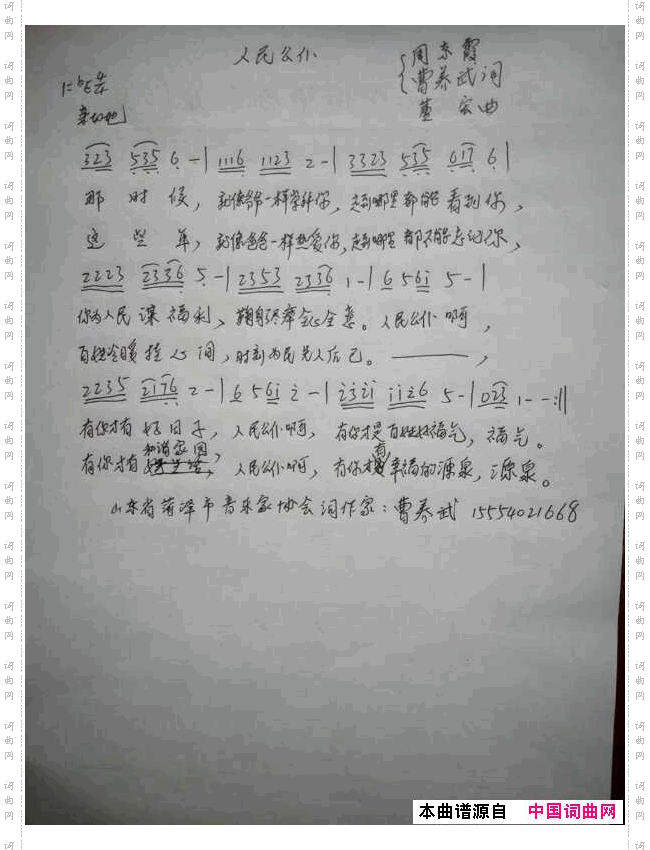 人民公仆
周东霞
曹养武词
董 宏曲
1=bE 4/4
亲切地
323 535 6 - | 1116 1123 2 - | 3323 535 617 6 |
那 时 候, 就像爷爷一样崇拜你, 走到哪里都能看到你,
这 些 年, 就像爸爸一样热爱你, 走到哪里都不能忘记你,
2223 2336 5 - | 2353 2336 1 - | 6 561 5 - |
你为人民 谋福利, 鞠躬尽瘁全心全意。人民公仆啊,
百姓冷暖挂心间, 时刻为民先人后己。 ———,
2235 2176 2 - | 6 561 2 - | 2321 1126 5 - | 023 1 - - :||
有你才有好日子, 人民公仆啊, 有你才是百姓好福气, 福气。
和谐家园,
有你才有 人民公仆啊, 有你才有幸福的源泉, 源泉。
山东省菏泽市音乐家协会词作家: 曹养武 15554021668
本曲谱源自 中国词曲网
词曲网